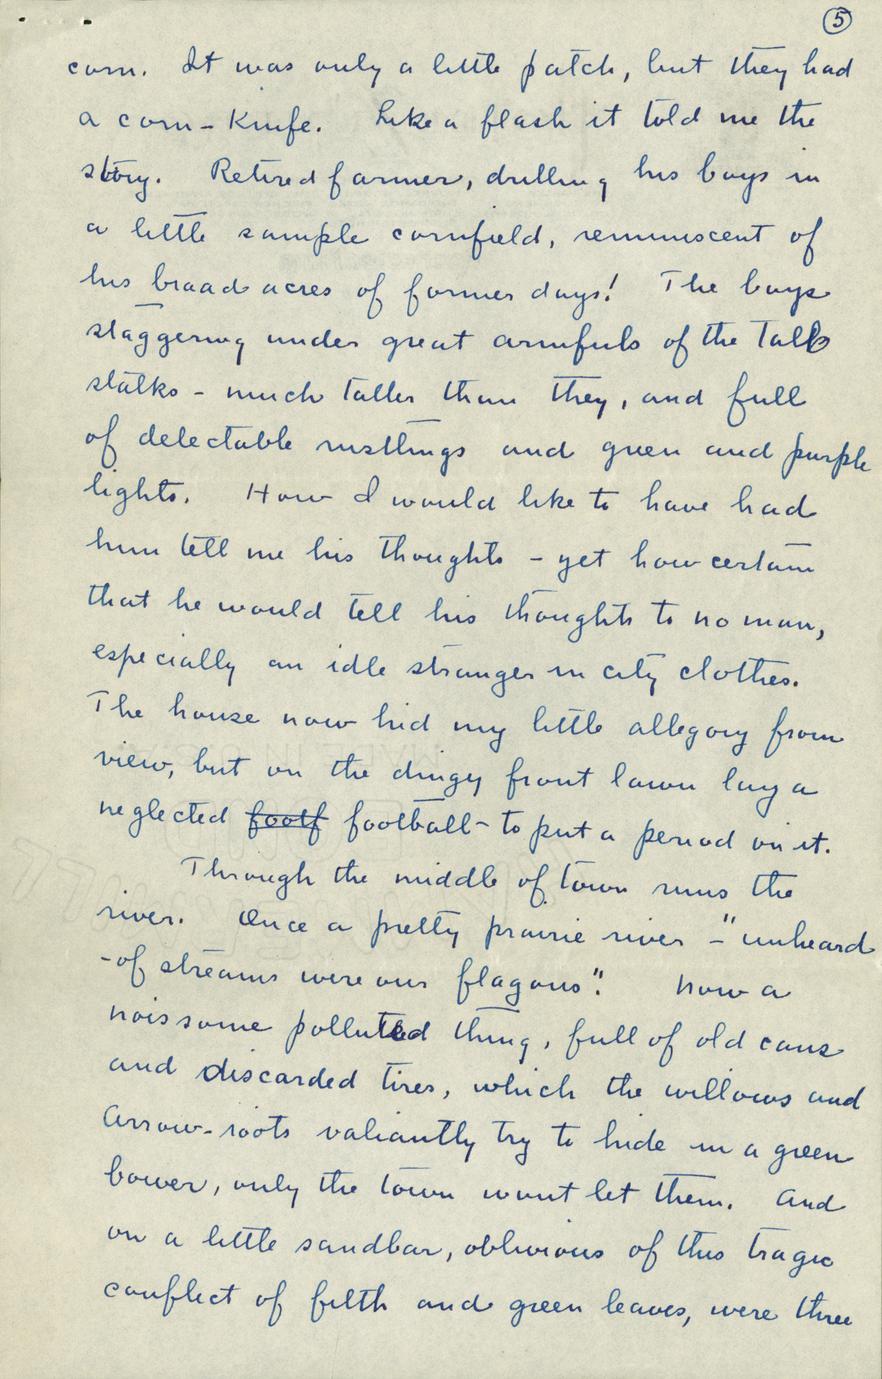 5
corn. It was only a little patch, but they had
a corn-knife. Like a flash it told me the
story. Retired farmer, drilling his boys in
a little sample cornfield, reminiscent of
his broad acres of former days! The boys
staggering under great armfuls of the tall
stalks - much taller than they, and full
of delectable rustlings and green and purple
lights. How I would like to have had
him tell me his thoughts - yet how certain
that he would tell his thoughts to no man,
especially an idle stranger in city clothes.
The house now hid my little allegory from
view, but on the dingy front lawn lay a
neglected footf football - to put a period on it.
Through the middle of town runs the
river. Once a pretty prairie river - "unheard
-of streams were our flagons". Now a
noissome polluted thing, full of old cans
and discarded tires, which the willows and
Arrow-roots valiantly try to hide in a green
bower, only the town wont let them. And
on a little sandbar, oblivious of this tragic
conflict of filth and green leaves, were three